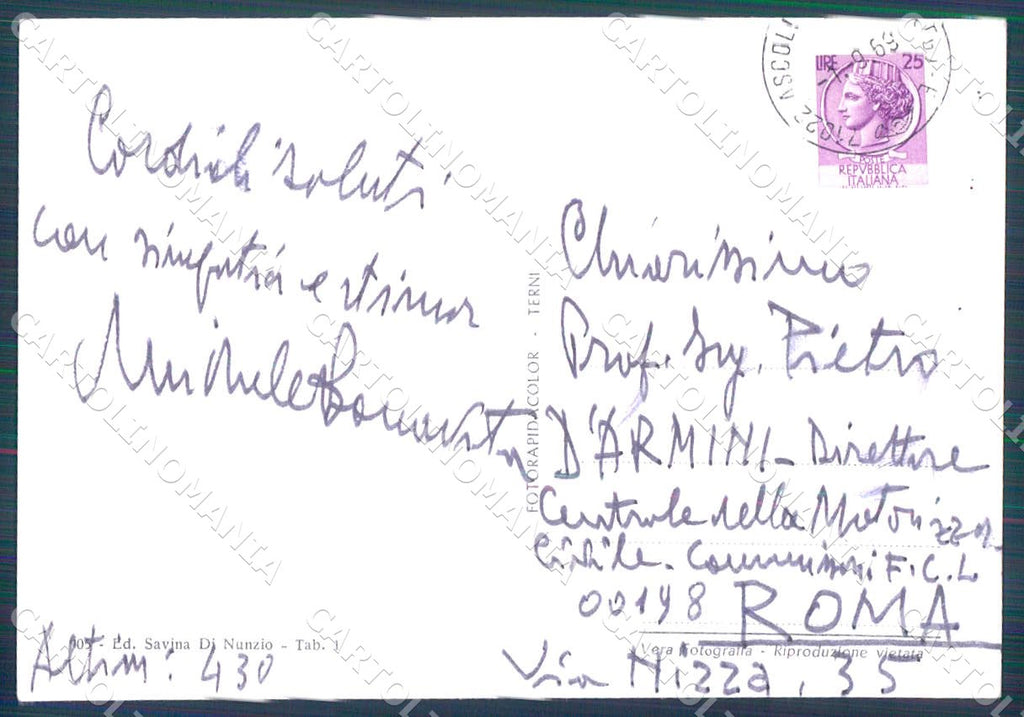 Cordiali saluti
con simpatia e stima
Michele Bonavita
005 - Ed. Savina Di Nunzio - Tab. 1
Altim: 430
FOTORAPIDACOLOR - TERNI
71022 ASCOLI
9.69
LIRE 25
POSTE
REPVBBLICA
ITALIANA
Chiarissimo
Prof. Ing. Pietro
D'ARMINI - Direttore
Centrale della Motorizzaz.
Civile - Commiss. F.C.L
00198 ROMA
Vera Fotografia - Riproduzione vietata
Via Nizza, 35
CARTOLINOMANIA